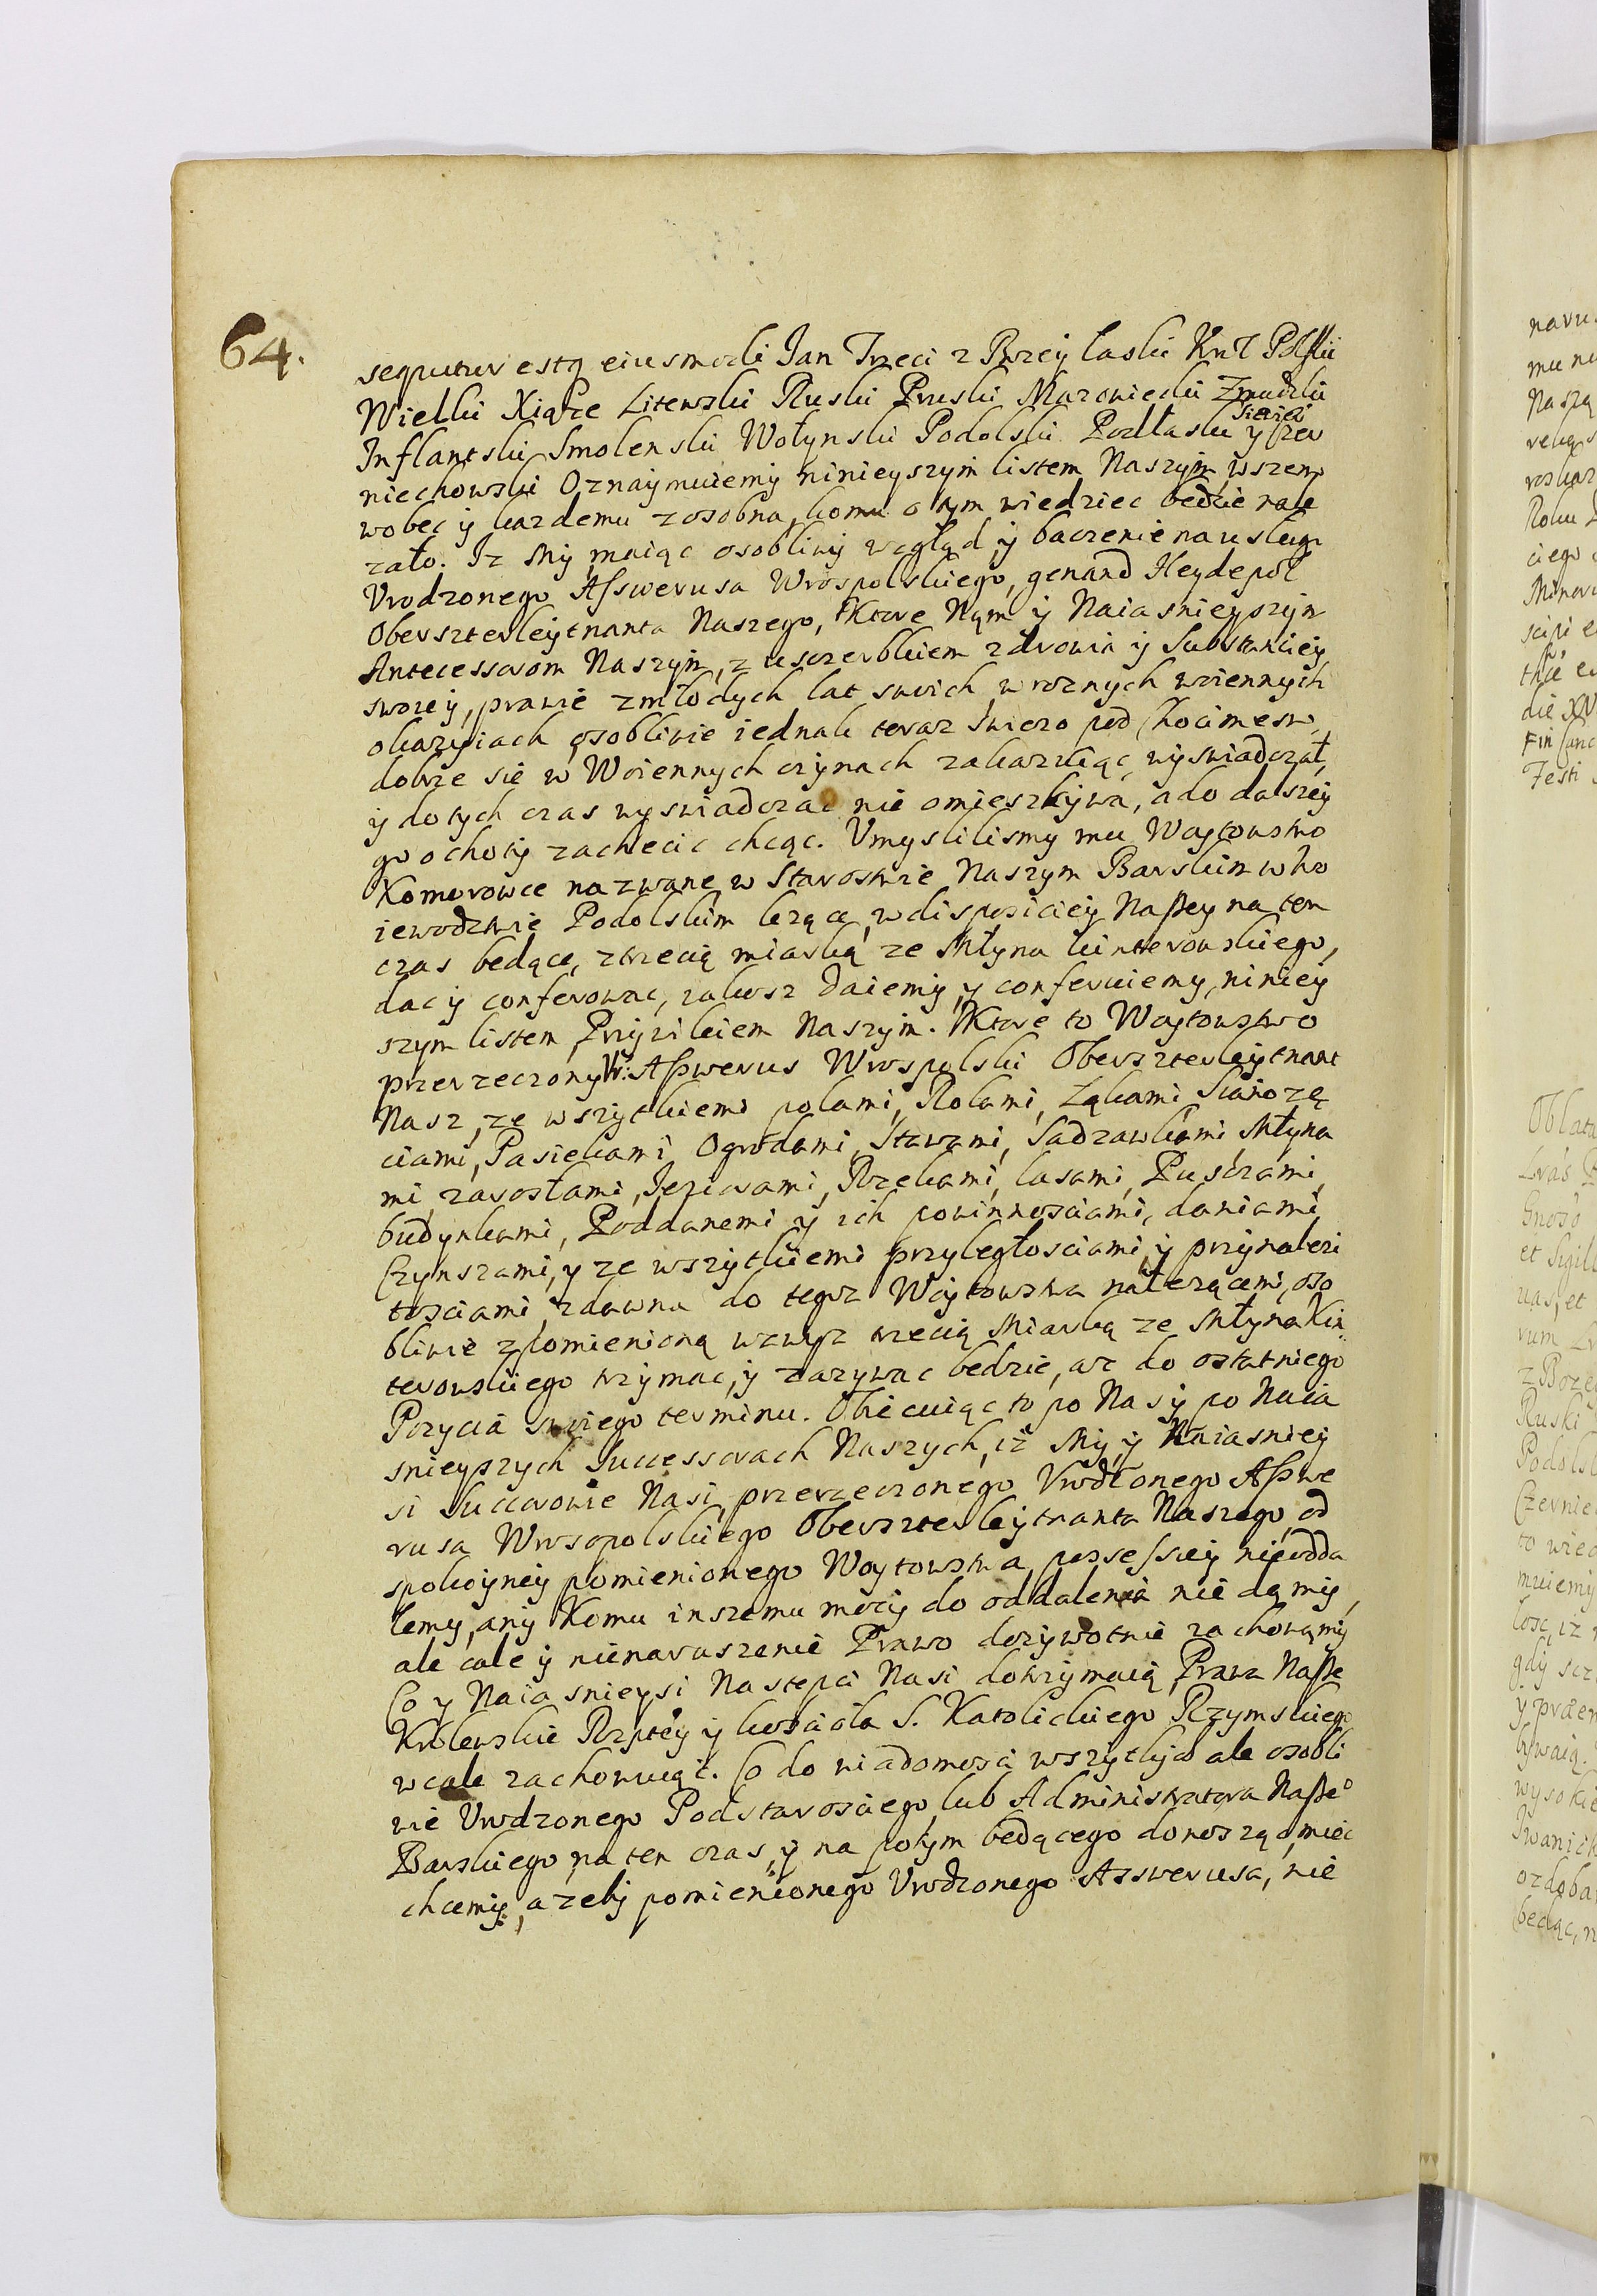 64.
sequitur estq eiusmodi Jan Trzeci z Bozey łaski Krol Polski
Wielki Xiąze Litewski Ruski Pruski Mazowiecki Zmudzki
Inflantski Smolenski Wołynski Podolski Podlaski Siewies y Czer
niechowski Oznaymuiemy ninieyszym listem Naszym, wszem
wobec y kazdemu zosobna, komu o tym wiedziec bedzie nale
zało. Iz My maiąc osobliwy wzgląd y baczenie na usługi
Vrodzonego Asswerusa Wrospolskiego, genand Heydepol
Oberszterleytnanta Naszego, Ktore Nąm y Naiasnieyszym
Antecessorom Naszym, z uszczerbkiem zdrowia y Substanciey
swoiey, prawie zmłodych lat swoich w roznych woiennych
okazyiach osobliwie iednak teraz swiezo pod Chocimesm
dobrze sie w Woiennych czynach zakazuiąc wyswiadczał,
y do tych czas wyswiadczac nie omieszkywa, a do dalszey
go ochoty zachecic chcąc. Vmyslilismy mu Woytowstwo
Komorowce nazwane w Starostwie Naszym Barskim w Wo
iewodztwie Podolskim lezące, w dispoziciey Naszey na ten
czas bedące, z trzecią miarką ze Młyna kinterowskiego,
dac y conferowac, iakosz daiemy y conferuiemy, niniey
szym listem Przywileiem Naszym. Ktore to Woytowstwo
przerzeczony Vr: Asswerus Wrospolski Oberszterleytnant
Nasz, ze wszytkiemi polami, Rolami, Łąkami Sianozę
ciami, Pasiekami, Ogrodami, Stawami, Sadzawkami, Młyna
mi, zarosłami, Jeziorami, Rzekami, lasami, Puszczami,
budynkami, Poddanemi y ich powinnosciami, daniami,
Czynszami, y ze wszytkiemi przyległosciami y przynalezi
tosciami, zdawna do tegoz Woytowstwa nalezącemi, oso
bliwie z pomienioną wzwysz trzecią Miarką ze Młyna Kin
terowskiego trzymac, y zazywac bedzie, az do ostatniego
Pozycia swoiego terminu. Obiecuiąc to po Nas y po Naia
snieyszych Successorach Naszych, iz My y Naiasniey
si Succesorowie Nasi, przerzeczonego Vrodzonego Asswe
rusa Wrospolskiego Oberszterleytnanta Naszego, od
spokoyney pomienionego Woytowstwa possessiey nieodda
lemy, any Komu inszemu mocy do oddalenia nie dąmy,
ale cale y nienaruszenie Prawo dozywotnie zachowąmy
Co y Naiasnieysi Nastepci Nasi dotrzymaią, Prawa Nasze
Krolewskie Rzptey y kosciola S. Katolickiego Rzymskiego
wcale zachowuiąc. Co do wiadomosci wszytkich ale osobli
wie Vrodzonego Podstarosciego lub Administratora Nasze°
Barskiego na ten czas, y na potym bedącego donosząc, miec
chcemy, azeby pomienionego Vrodzonego Asswerusa, nie